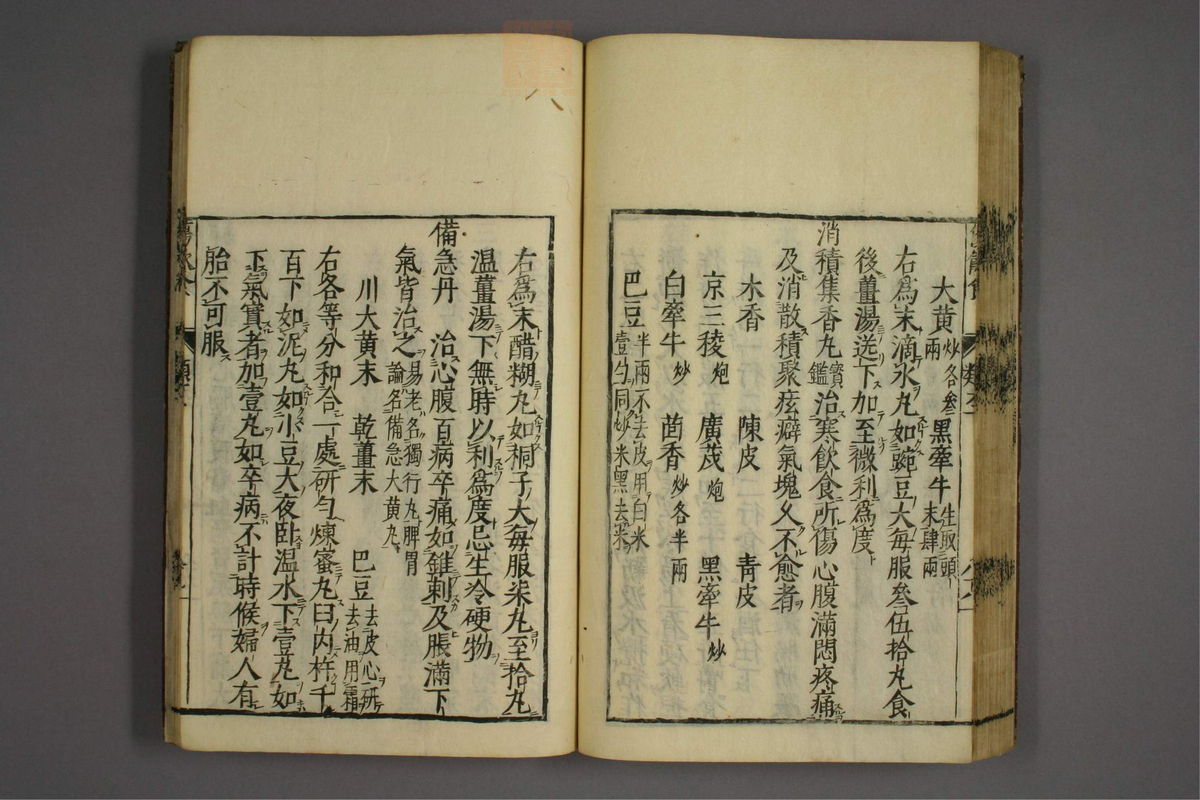 大黄炒各叁兩　黒牽牛生取頭末肆兩
右爲末滴水丸如豌豆大每服叁伍拾丸食
後薑湯送下加至微利爲度
消積集香丸寳鑑治寒飲食所傷心腹滿悶疼痛
及消散積聚痃癖氣塊久不愈者
木香　陳皮　青皮
京三稜炮　廣茂炮　黒牽牛炒
白牽牛炒　茴香炒各半兩
巴豆半兩不去皮用白米壹勺同炒米黒去米
右爲末醋糊丸如桐子大每服柒丸至拾丸
温薑湯下無時以利爲度忌生冷硬物
備急丹　治心腹百病卒痛如錐刺及脹滿下
氣皆治之易老名獨行丸脾胃論名備急大黄丸
川大黄末　乾薑末　巴豆去皮心研去油用霜
右各等分和合一處研勻煉蜜丸臼内杵千
百下如泥丸如小豆大夜卧温水下壹丸如
下氣實者加壹丸如卒病不計時候婦人有
胎不可服